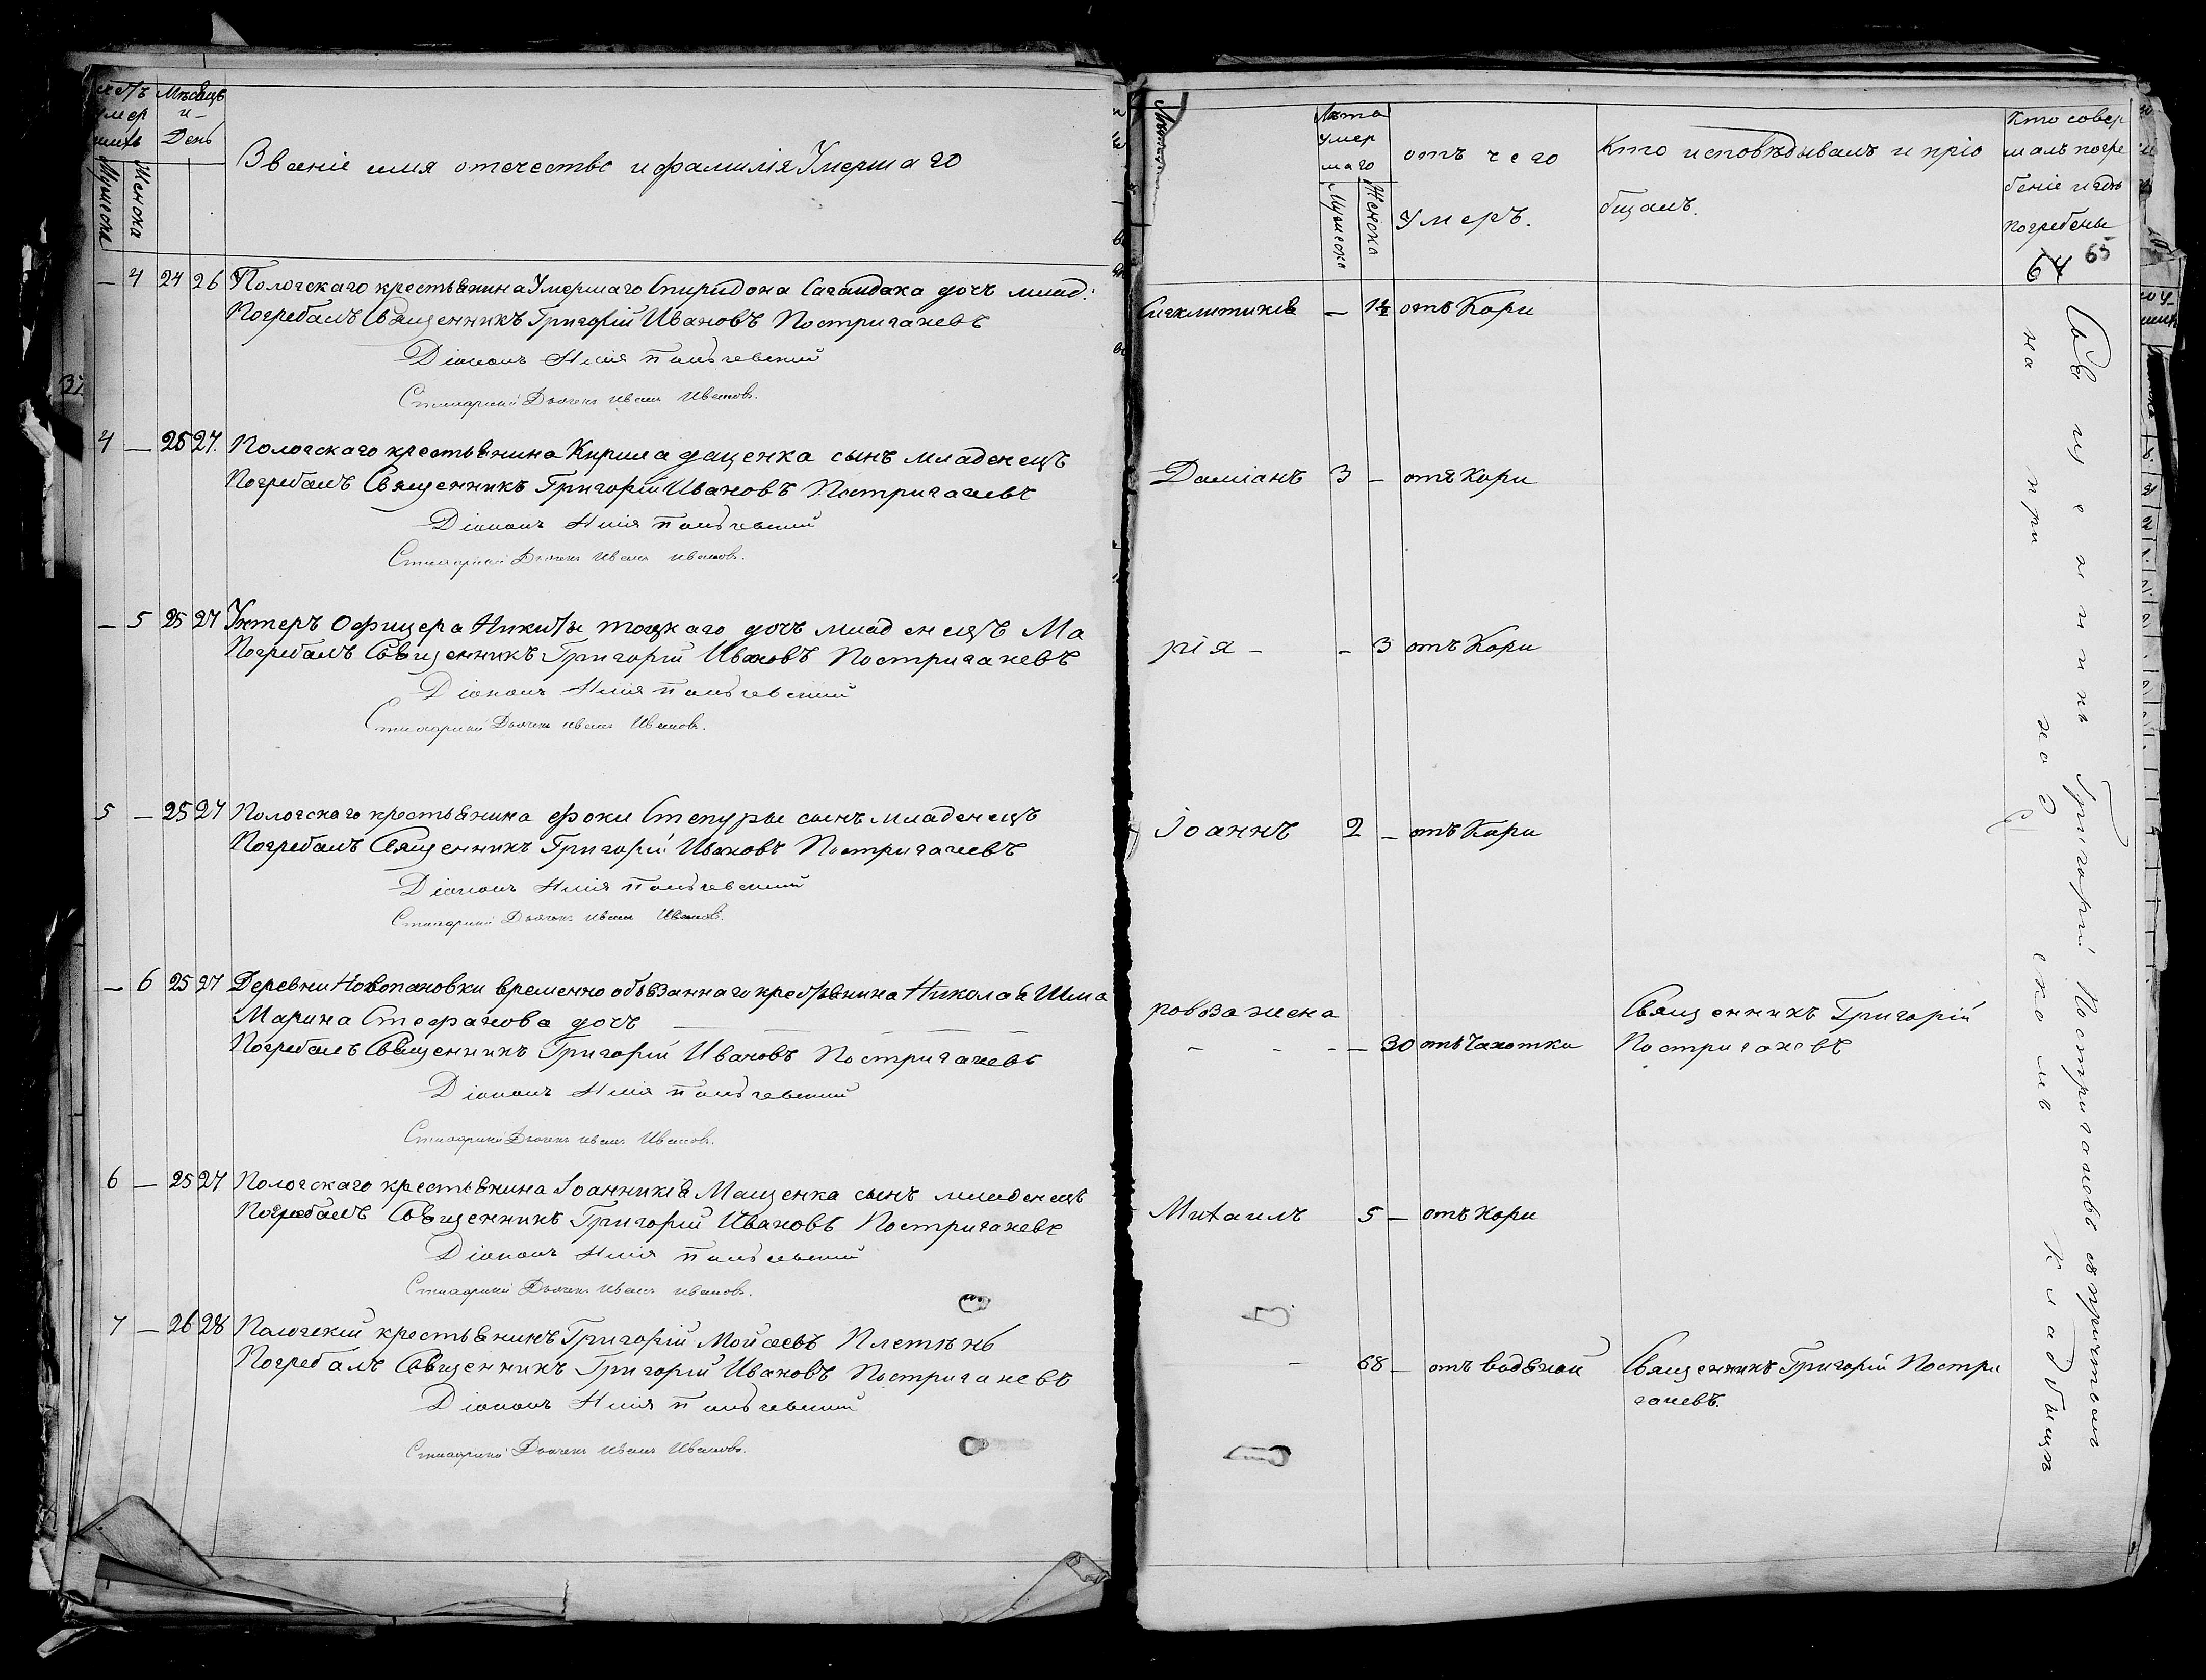 Мѣсяцъ
и
День
Званіе имя отечество и фамилія Умершаго
Мужеска
Женска
Лѣта
умер
шаго
Мужеска
Женска
отъ чего
Умеръ.
Кто исповѣдывалъ и пріо
бщалъ.
Кто совер
шалъ погре
беніе и гдѣ
погребены
64 65
— 4 24 26 Пологскаго крестьянина Умершаго Спиридона Сагайдака дочь млад:
Погребалъ Священникъ Григорій Ивановъ Постригачевъ
Діаконъ Илія
Стихарный Дьячекъ Иванъ Ивановъ.
Сигклитикія — 1½ отъ Кори
4 — 25 27. Пологскаго крестьянина Кирила Даценка сынъ младенецъ
Погребалъ Священникъ Григорій Ивановъ Постригачевъ
Діаконъ Илія
Стихарный Дьячекъ Иванъ Ивановъ.
Даміанъ 3 — отъ Кори
— 5 25 27 Унтеръ Офицера Никиты Тоцкаго дочь младенецъ Ма
Погребалъ Священникъ Григорій Ивановъ Постригачевъ
Діаконъ Илія
Стихарный Дьячекъ Иванъ Ивановъ.
рія — — 3 отъ Кори
5 — 25 27 Пологскаго крестьянина Фоки Степуры сынъ младенецъ
Погребалъ Священникъ Григорій Ивановъ Постригачевъ
Діаконъ Илія
Стихарный Дьячекъ Иванъ Ивановъ.
Іоаннъ 2 — отъ Кори
— 6 25 27 Деревни Новопановки временно обязаннаго крестьянина Николая Шма
Марина Стефанова дочь
Погребалъ Священникъ Григорій Ивановъ Постригачевъ
Діаконъ Илія
Стихарный Дьячекъ Иванъ Ивановъ.
ровоза жена
— 30 отъ Чахотки
Священникъ Григорій
Постригачевъ
6 — 25 27 Пологскаго крестьянина Іоанникія Маценка сынъ младенецъ
Погребалъ Священникъ Григорій Ивановъ Постригачевъ
Діаконъ Илія
Стихарный Дьячекъ Иванъ Ивановъ.
Михаилъ 5 — отъ Кори
7 — 26 28 Пологскій крестьянинъ Григорій Мойсеевъ Плетѣнь
Погребалъ Священникъ Григорій Ивановъ Постригачевъ
Діаконъ Илія
Стихарный Дьячекъ Иванъ Ивановъ.
— 68 — отъ водяной
Священникъ Григорій Постри
гачевъ.
Священникъ Григорій Постригачевъ съ причтомъ
на приходскомъ кладбищѣ